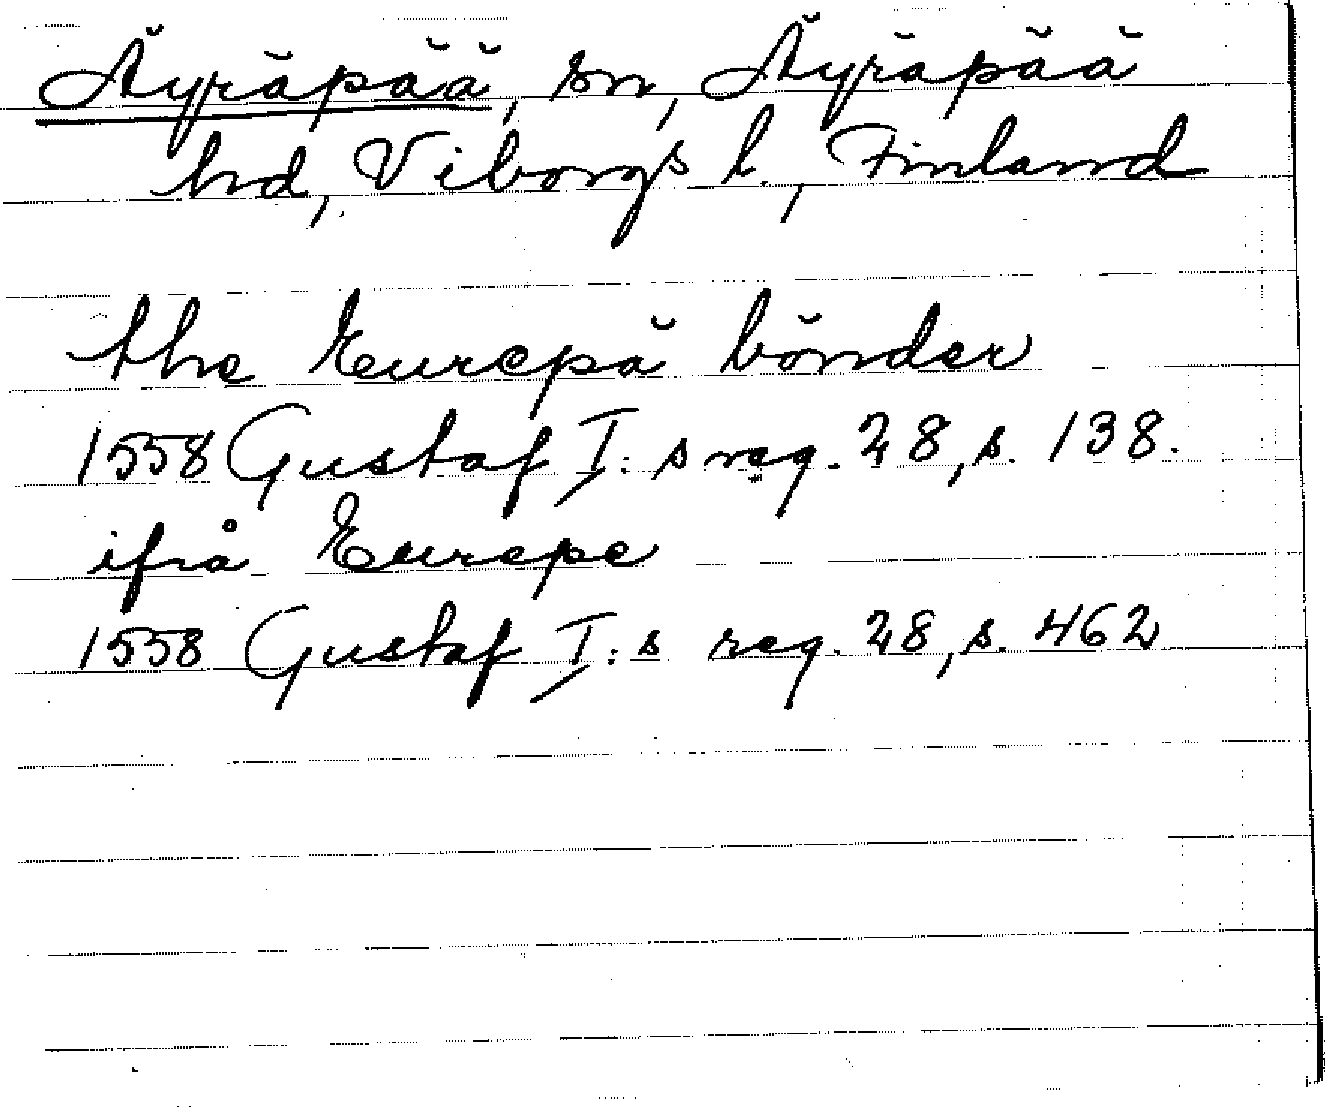 Äyräpää, sn, Äyräpää
hd, Viborgs l., Finland
the Eurepä bönder
1558 Gustaf I:s reg. 28, s. 138.
ifrå Eurepe
1558 Gustaf I:s reg. 28, s. 462